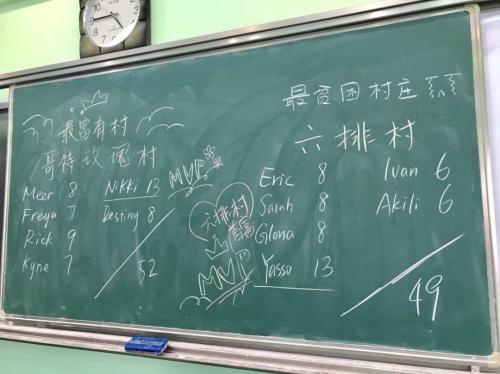 最富有村
哥待玫瑰村
Meer 8
Freya 7
Rick 9
Kyne 7
Nikki 13
Destiny 8
52
MVP
六排村
首富
MVP
最贫困村庄
六排村
Eric 8
Sarah 8
Gloria 8
Yasso 13
Ivan 6
Akili 6
49